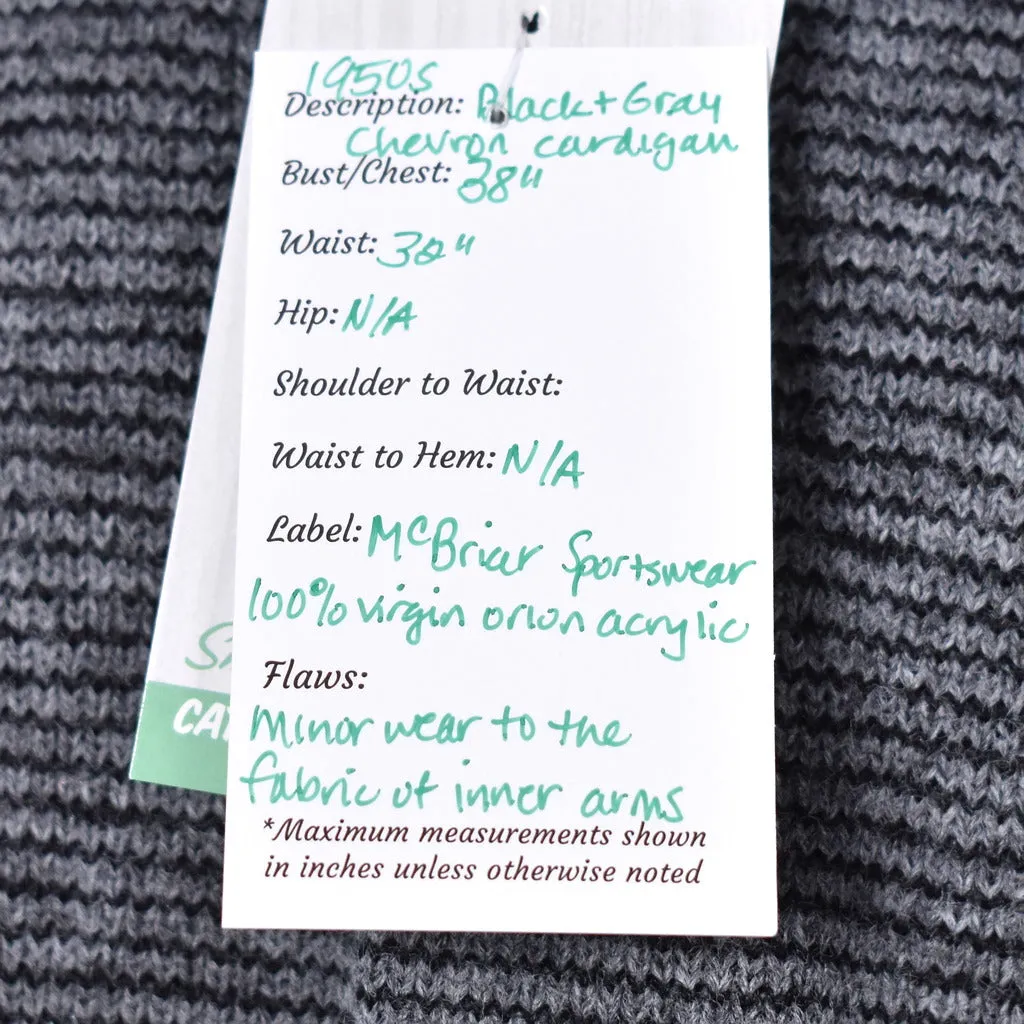 1950s
Description: Black + Gray
Chevron cardigan
Bust/Chest: 38"
Waist: 30"
Hip: N/A
Shoulder to Waist:
Waist to Hem: N/A
Label: McBriar Sportswear
100% virgin orlon acrylic
Flaws:
Minor wear to the
fabric of inner arms
*Maximum measurements shown
in inches unless otherwise noted